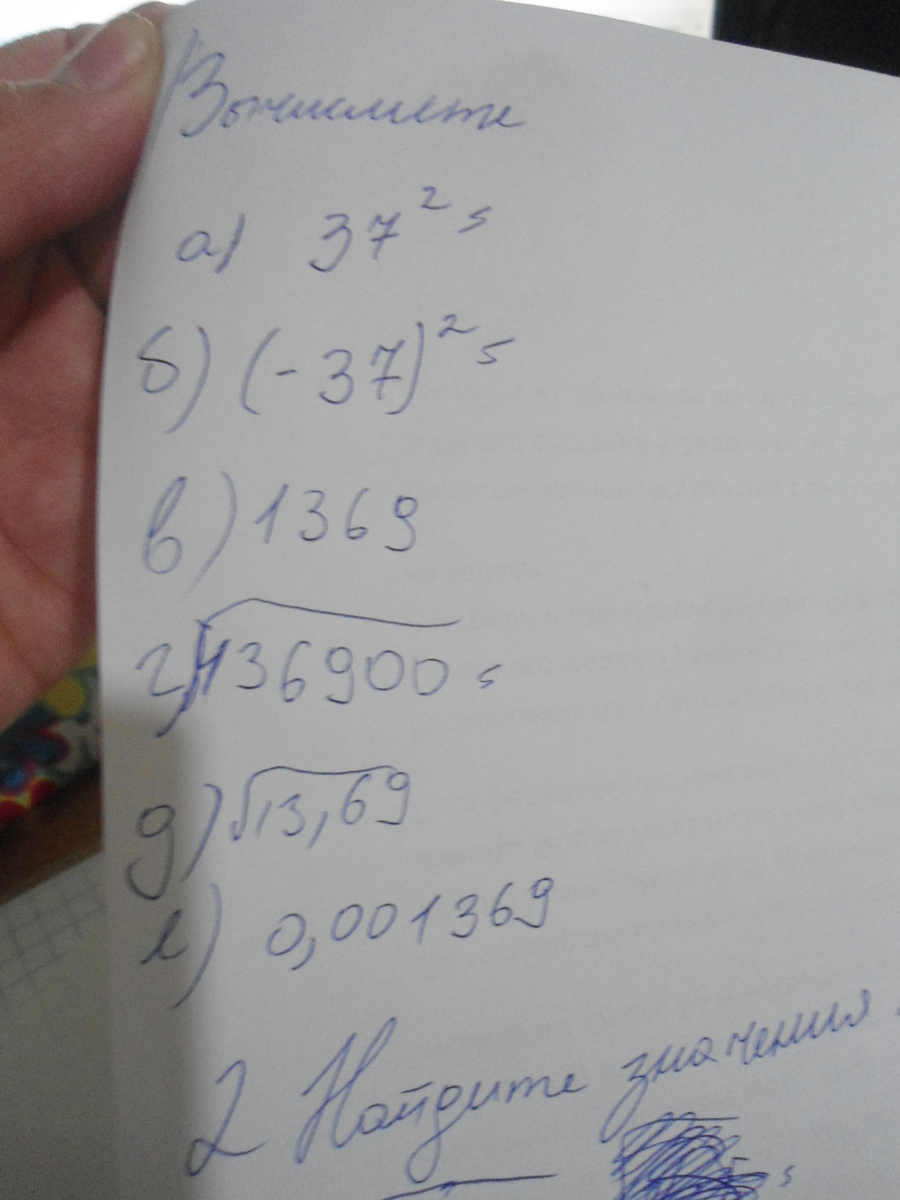 Вычислите
а) 37²;
б) (-37)²;
в) 1369
г) √136900;
д) √13,69
е) 0,001369
2 Найдите значения